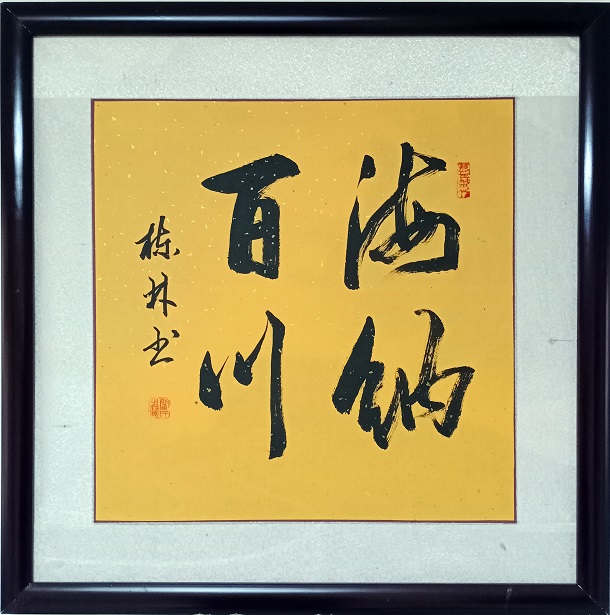 海纳
百川
栋林书